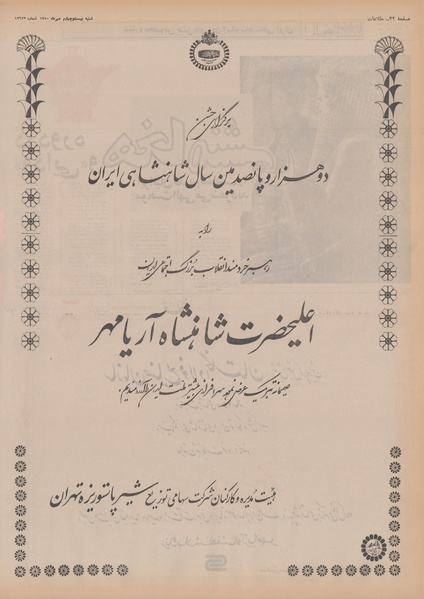 صفحه ۲۶ـ اطلاعات
شنبه بیست‌وچهارم مهرماه ۱۳۵۰
برگزاری جشن
دو هزار و پانصدمین سال شاهنشاهی ایران
را به
رهبر خردمند انقلاب بزرگ اجتماعی ایران
اعلیحضرت شاهنشاه آریامهر
صمیمانه تبریک عرض نموده سرافرازی بیشتر ملت ایران را آرزومندیم.
هیئت مدیره و کارکنان شرکت سهامی توزیع شیر پاستوریزه تهران